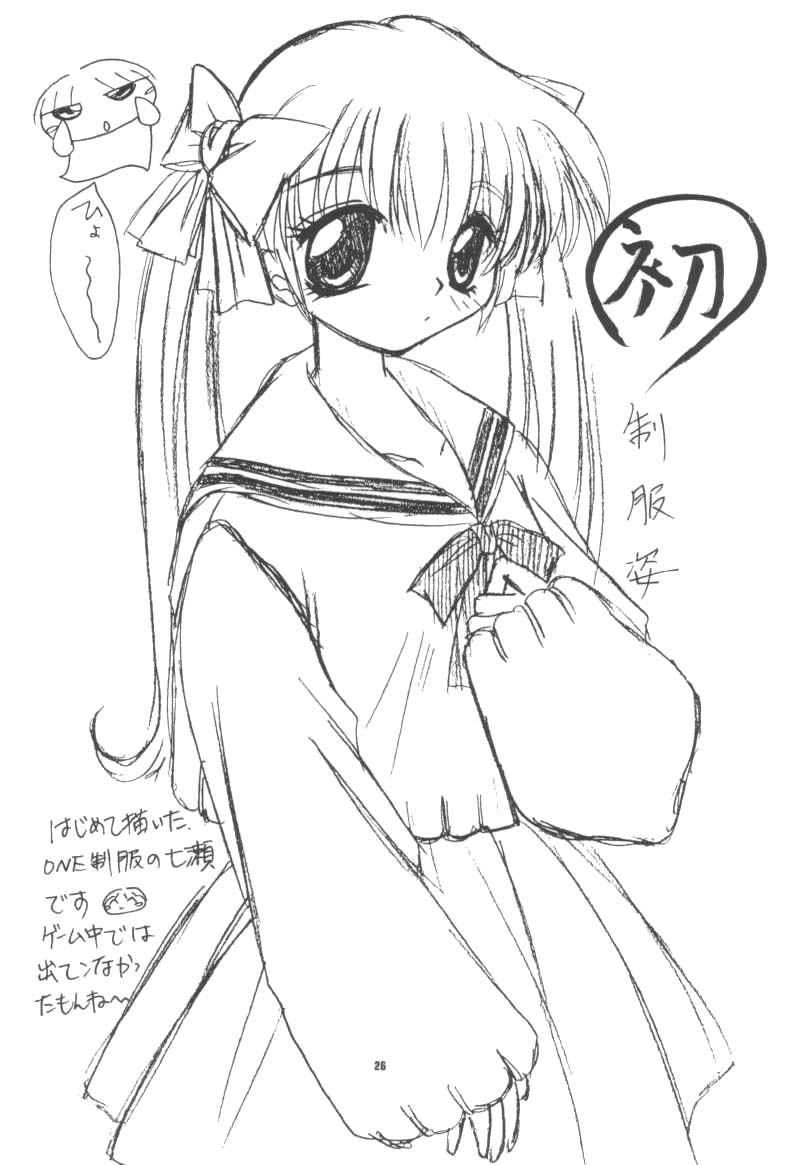 ひょ〜
初
制服姿
はじめて描いた、
ONE制服の七瀬
です
ゲーム中では
出てンなかっ
たもんね〜
26